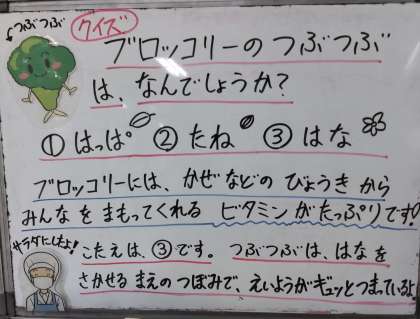 つぶつぶ
クイズ
ブロッコリーのつぶつぶ
は、なんでしょうか?
①はっぱ ②たね ③はな
ブロッコリーには、かぜなどのびょうきから
みんなをまもってくれる ビタミンがたっぷりです!
サラダにしたよ!
こたえは、③です。 つぶつぶは、はなを
さかせるまえのつぼみで、えいようがギュッとつまっているよ